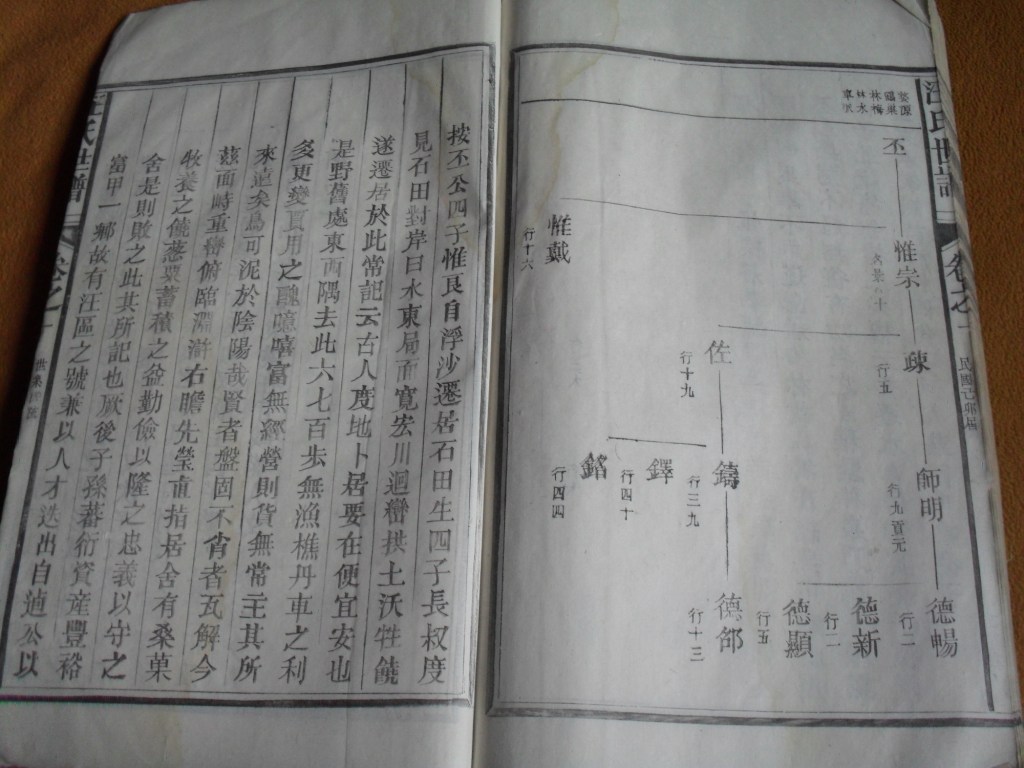 汪氏世譜
卷之一
民國己卯屆
婺源
林梅
林水
丕
惟宗
疎
行五
師明
行九
德暢
行二
德新
行一
德顯
行五
佐
行十九
鑄
行三九
德郃
行十三
鐸
行四十
銘
行四四
惟戴
行十六
按丕公四子惟良自浮沙遷居石田生四子長权度
見石田對岸曰水東局面寬宏川迴巒拱土沃牲饒
遂遷居於此常記云古人度地卜居要在便宜安也
是野舊處東西隅去此六七百步無漁樵丹車之利
多更變貿用之醜噫嘻富無經營則貨無常主其所
來遠矣烏可泥於陰陽哉賢者盤固不肖者瓦解今
茲面峙重巒俯臨淵滸右瞻先塋直指居舍有桑菓
牧養之饒慈粟蓄積之益勤儉以隆之忠義以守之
舍是則敗之此其所記也厥後子孫蕃衍資産豐裕
富甲一鄉故有汪區之號兼以人才迭出自逌公以
汪氏世譜
卷之一